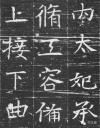 内太妃承
脩工容備
上接下曲